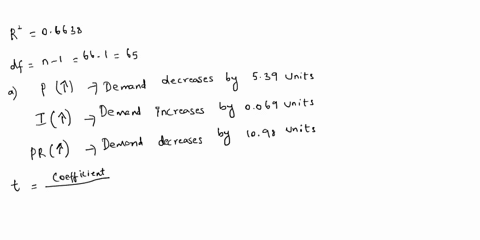 R² = 0.6638
df = n-1 = 66-1 = 65
a) P (↑) → Demand decreases by 5.39 units
I (↑) → Demand increases by 0.069 units
PR (↑) → Demand decreases by 10.98 units
t = coefficient